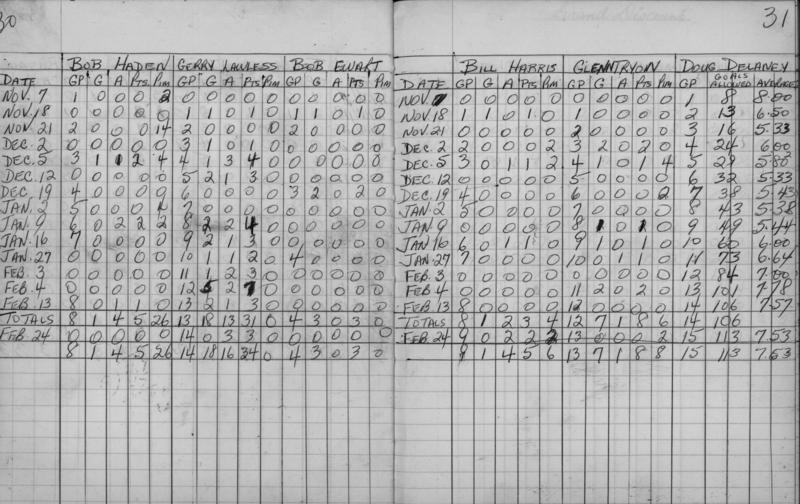 30
31
BOB HADEN GERRY LAWLESS BOB EWART
DATE GP G A Pts. Pim GP G A Pts Pim GP G A Pts Pim
NOV. 7 1 0 0 0 2 0 0 0 0 0 0 0 0 0 0
NOV. 18 0 0 0 0 0 1 1 0 1 0 1 1 0 1 0
NOV. 21 2 0 0 0 14 2 0 0 0 0 2 0 0 0 0
DEC. 2 0 0 0 0 0 3 1 0 1 0 0 0 0 0 0
DEC. 5 3 1 1 2 4 4 1 3 4 0 0 0 0 0
DEC. 12 0 0 0 0 0 5 2 1 3 0 0 0 0 0 0
DEC. 19 4 0 0 0 0 6 0 0 0 0 3 2 0 2 0
JAN. 2 5 0 0 0 7 0 0 0 0 0 0 0 0 0
JAN. 9 6 0 2 2 2 8 2 2 4 0 0 0 0 0 0
JAN. 16 7 0 0 0 0 9 2 1 3 0 0 0 0 0 0
JAN. 27 0 0 0 0 0 10 1 1 2 0 4 0 0 0 0
FEB. 3 0 0 0 0 0 11 1 2 3 0 0 0 0 0 0
FEB. 4 0 0 0 0 0 12 5 2 7 0 0 0 0 0 0
FEB. 13 8 0 1 1 0 13 2 1 3 0 0 0 0 0 0
TOTALS 8 1 4 5 26 13 18 13 31 0 4 3 0 3 0
FEB 24 0 0 0 0 0 14 0 3 3 0 0 0 0 0 0
8 1 4 5 26 14 18 16 34 0 4 3 0 3 0
BILL HARRIS GLENN TRYON DOUG DELANEY
DATE GP G A Pts Pim GP G A Pts Pim GP GOALS ALLOWED AVERAGE
NOV. 7 0 0 0 0 0 0 0 0 0 0 1 8 8.00
NOV. 18 1 1 0 1 0 1 0 0 0 0 2 13 6.50
NOV. 21 0 0 0 0 0 2 0 0 0 0 3 16 5.33
DEC. 2 2 0 0 0 2 3 2 0 2 0 4 24 6.00
DEC. 5 3 0 1 1 2 4 1 0 1 4 5 29 5.80
DEC. 12 0 0 0 0 0 5 0 0 0 0 6 32 5.33
DEC. 19 4 0 0 0 0 6 0 0 0 2 7 38 5.43
JAN. 2 5 0 0 0 0 7 0 0 0 0 8 43 5.38
JAN. 9 0 0 0 0 0 8 1 0 1 0 9 49 5.44
JAN. 16 6 0 1 1 0 9 1 0 1 0 10 60 6.00
JAN. 27 7 0 0 0 0 10 0 1 1 0 11 73 6.64
FEB. 3 0 0 0 0 0 0 0 0 0 0 12 84 7.00
FEB. 4 0 0 0 0 0 11 2 0 2 0 13 101 7.78
FEB. 13 8 0 0 0 0 12 0 0 0 0 14 106 7.57
TOTALS 8 1 2 3 4 12 7 1 8 6 14 106
FEB. 24 9 0 2 2 2 13 0 0 0 2 15 113 7.53
9 1 4 5 6 13 7 1 8 8 15 113 7.53